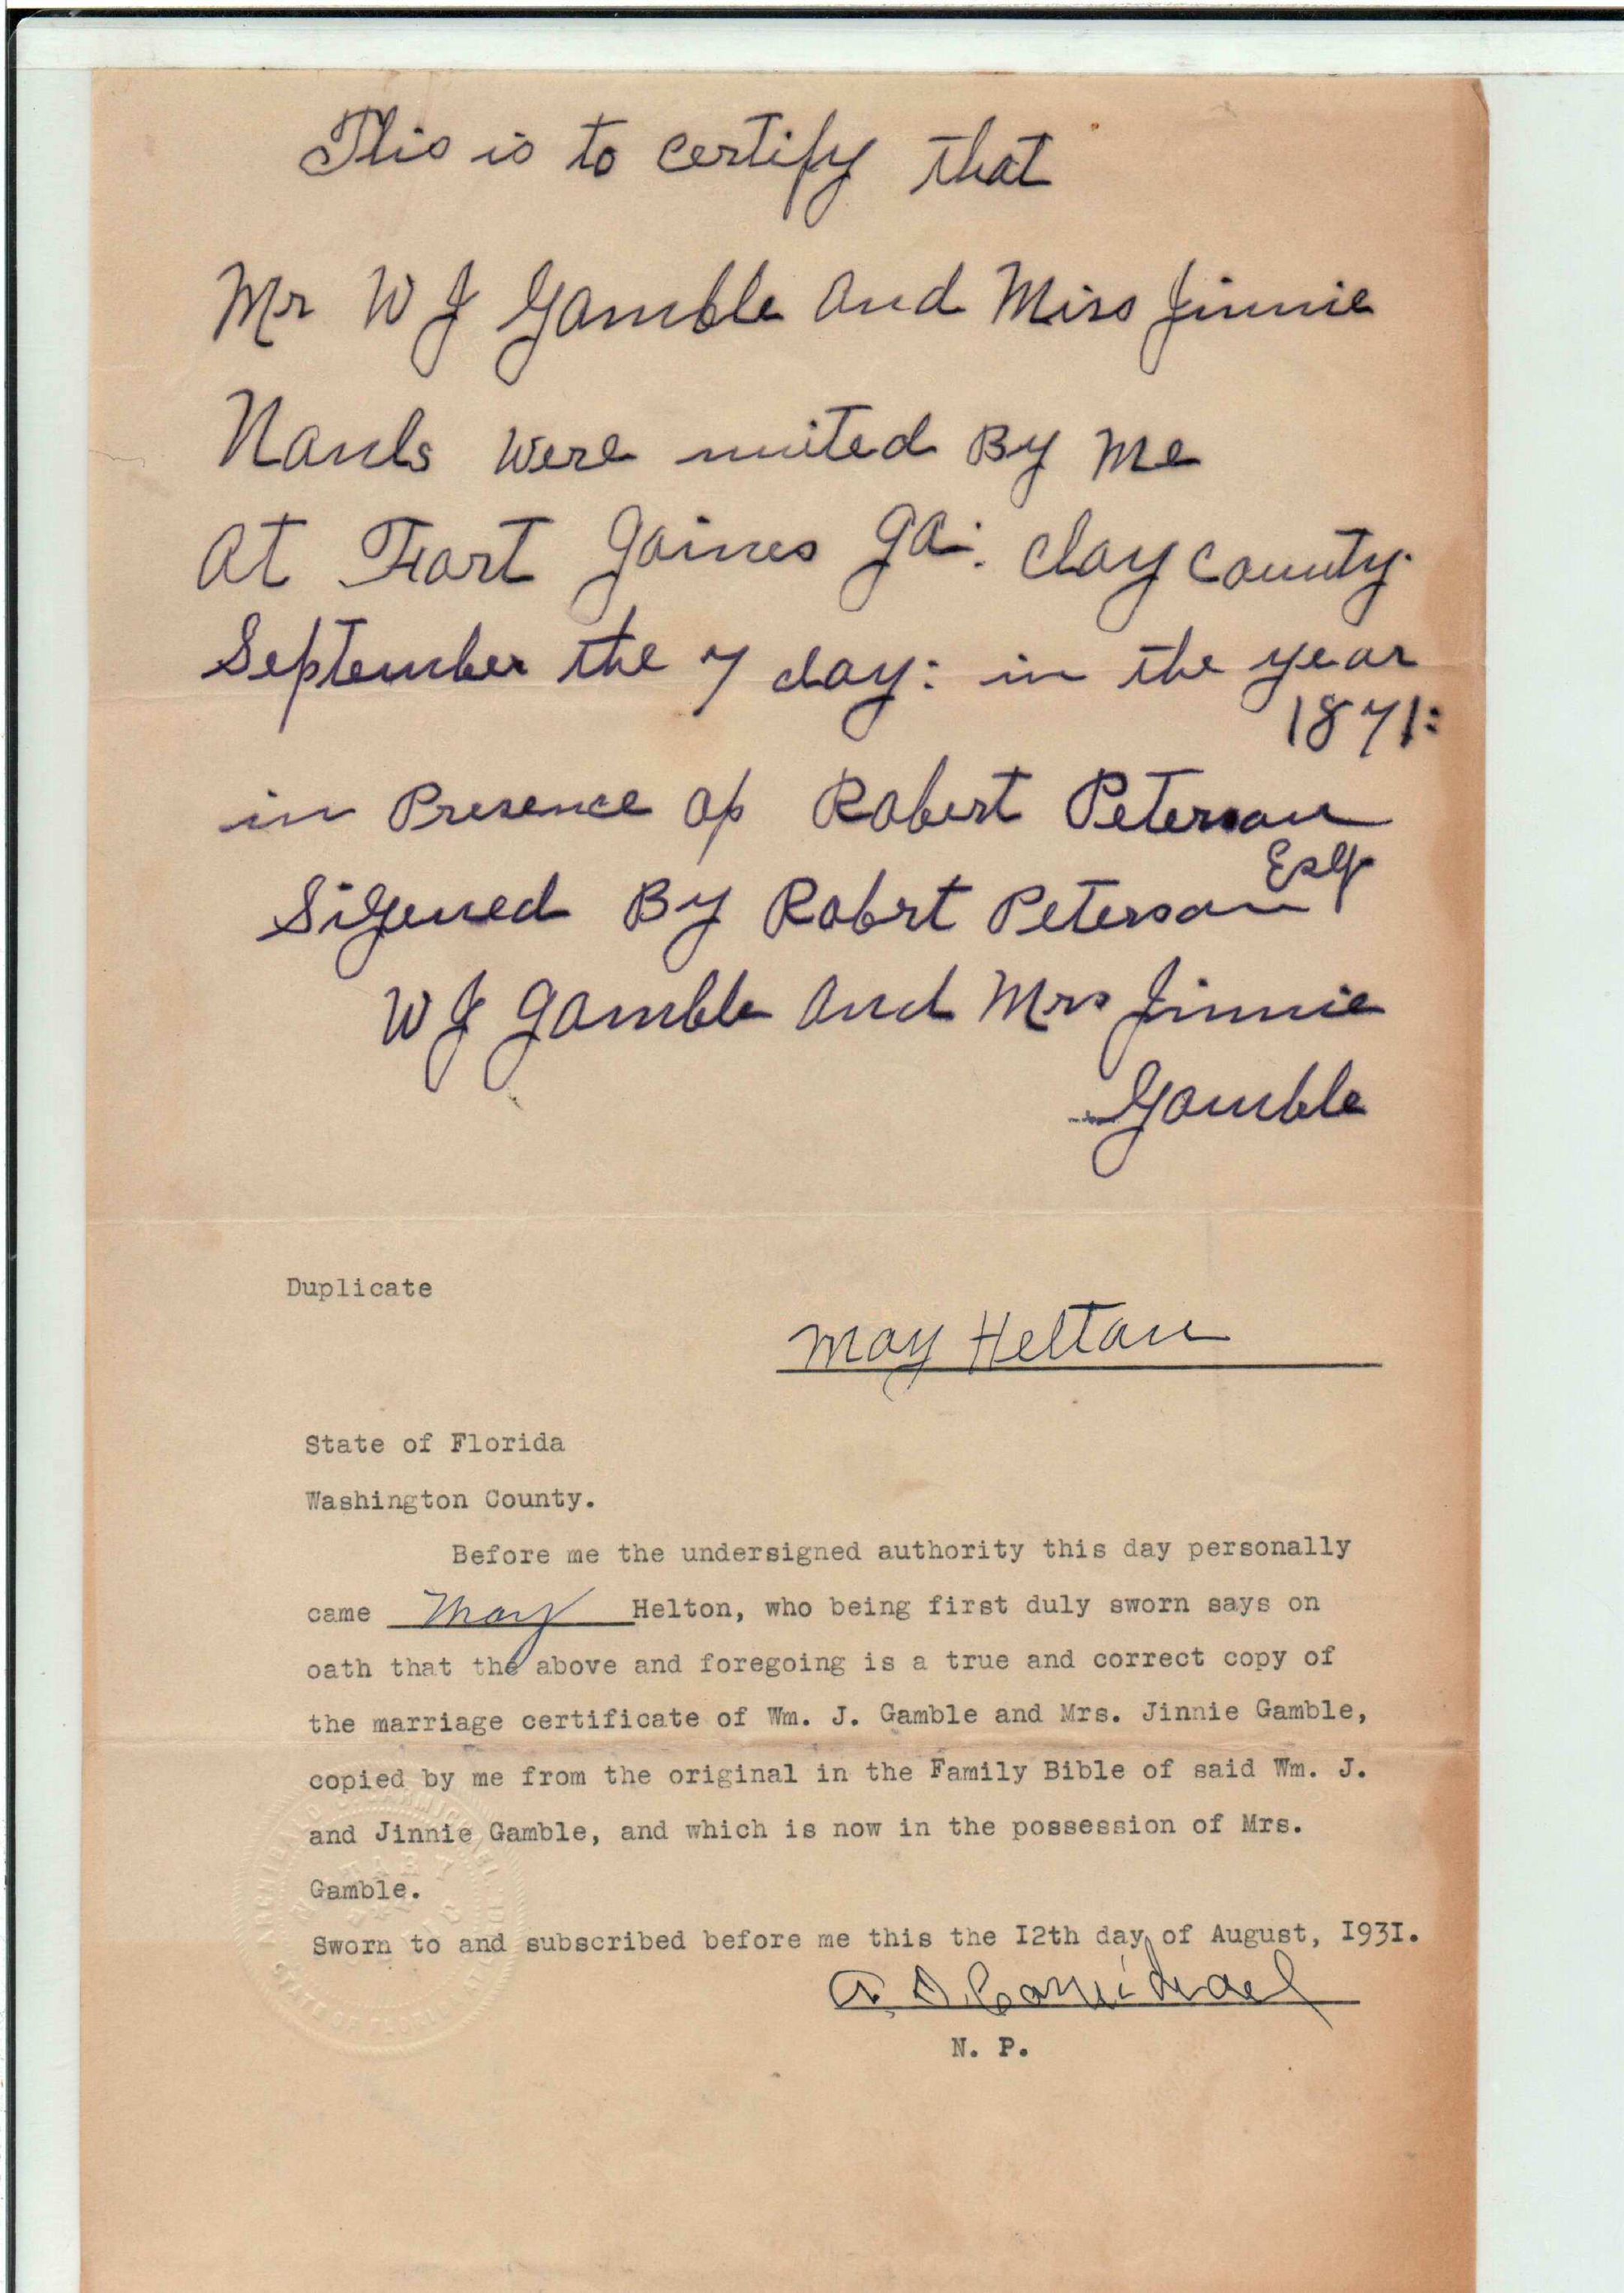 This is to certify that
Mr W J Gamble and Miss Jinnie
Nauls were united By me
at Fort Gaines Ga. Clay County.
September the 7 day: in the year
1871:
in Presence of Robert Peterson
Esq
Sigened By Robert Peterson
W J Gamble and Mrs Jinnie
Gamble
Duplicate
May Helton
State of Florida
Washington County.
Before me the undersigned authority this day personally
came May Helton, who being first duly sworn says on
oath that the above and foregoing is a true and correct copy of
the marriage certificate of Wm. J. Gamble and Mrs. Jinnie Gamble,
copied by me from the original in the Family Bible of said Wm. J.
and Jinnie Gamble, and which is now in the possession of Mrs.
Gamble.
Sworn to and subscribed before me this the I2th day of August, I93I.
A. D. Carmichael
N. P.
NOTARY
STATE OF FLORIDA AT